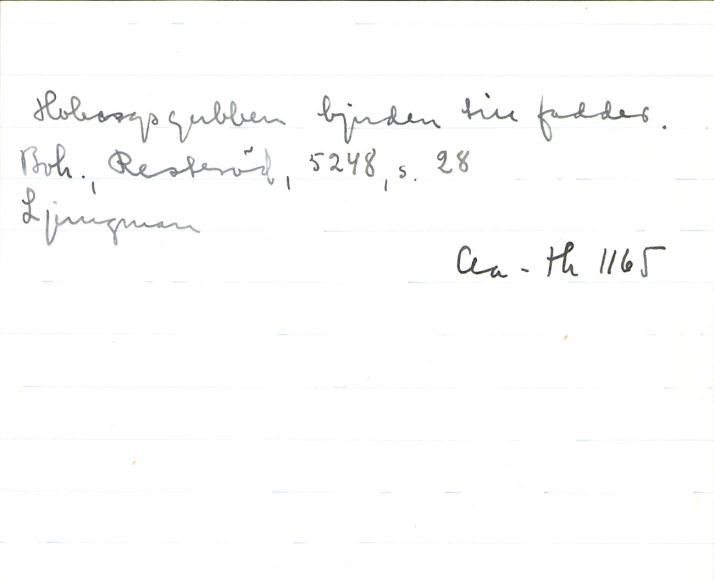 Hobergsgubben bjuden till fadder.
Boh., Resteröd, 5248, s. 28
Ljungman
Aa - Th 1165